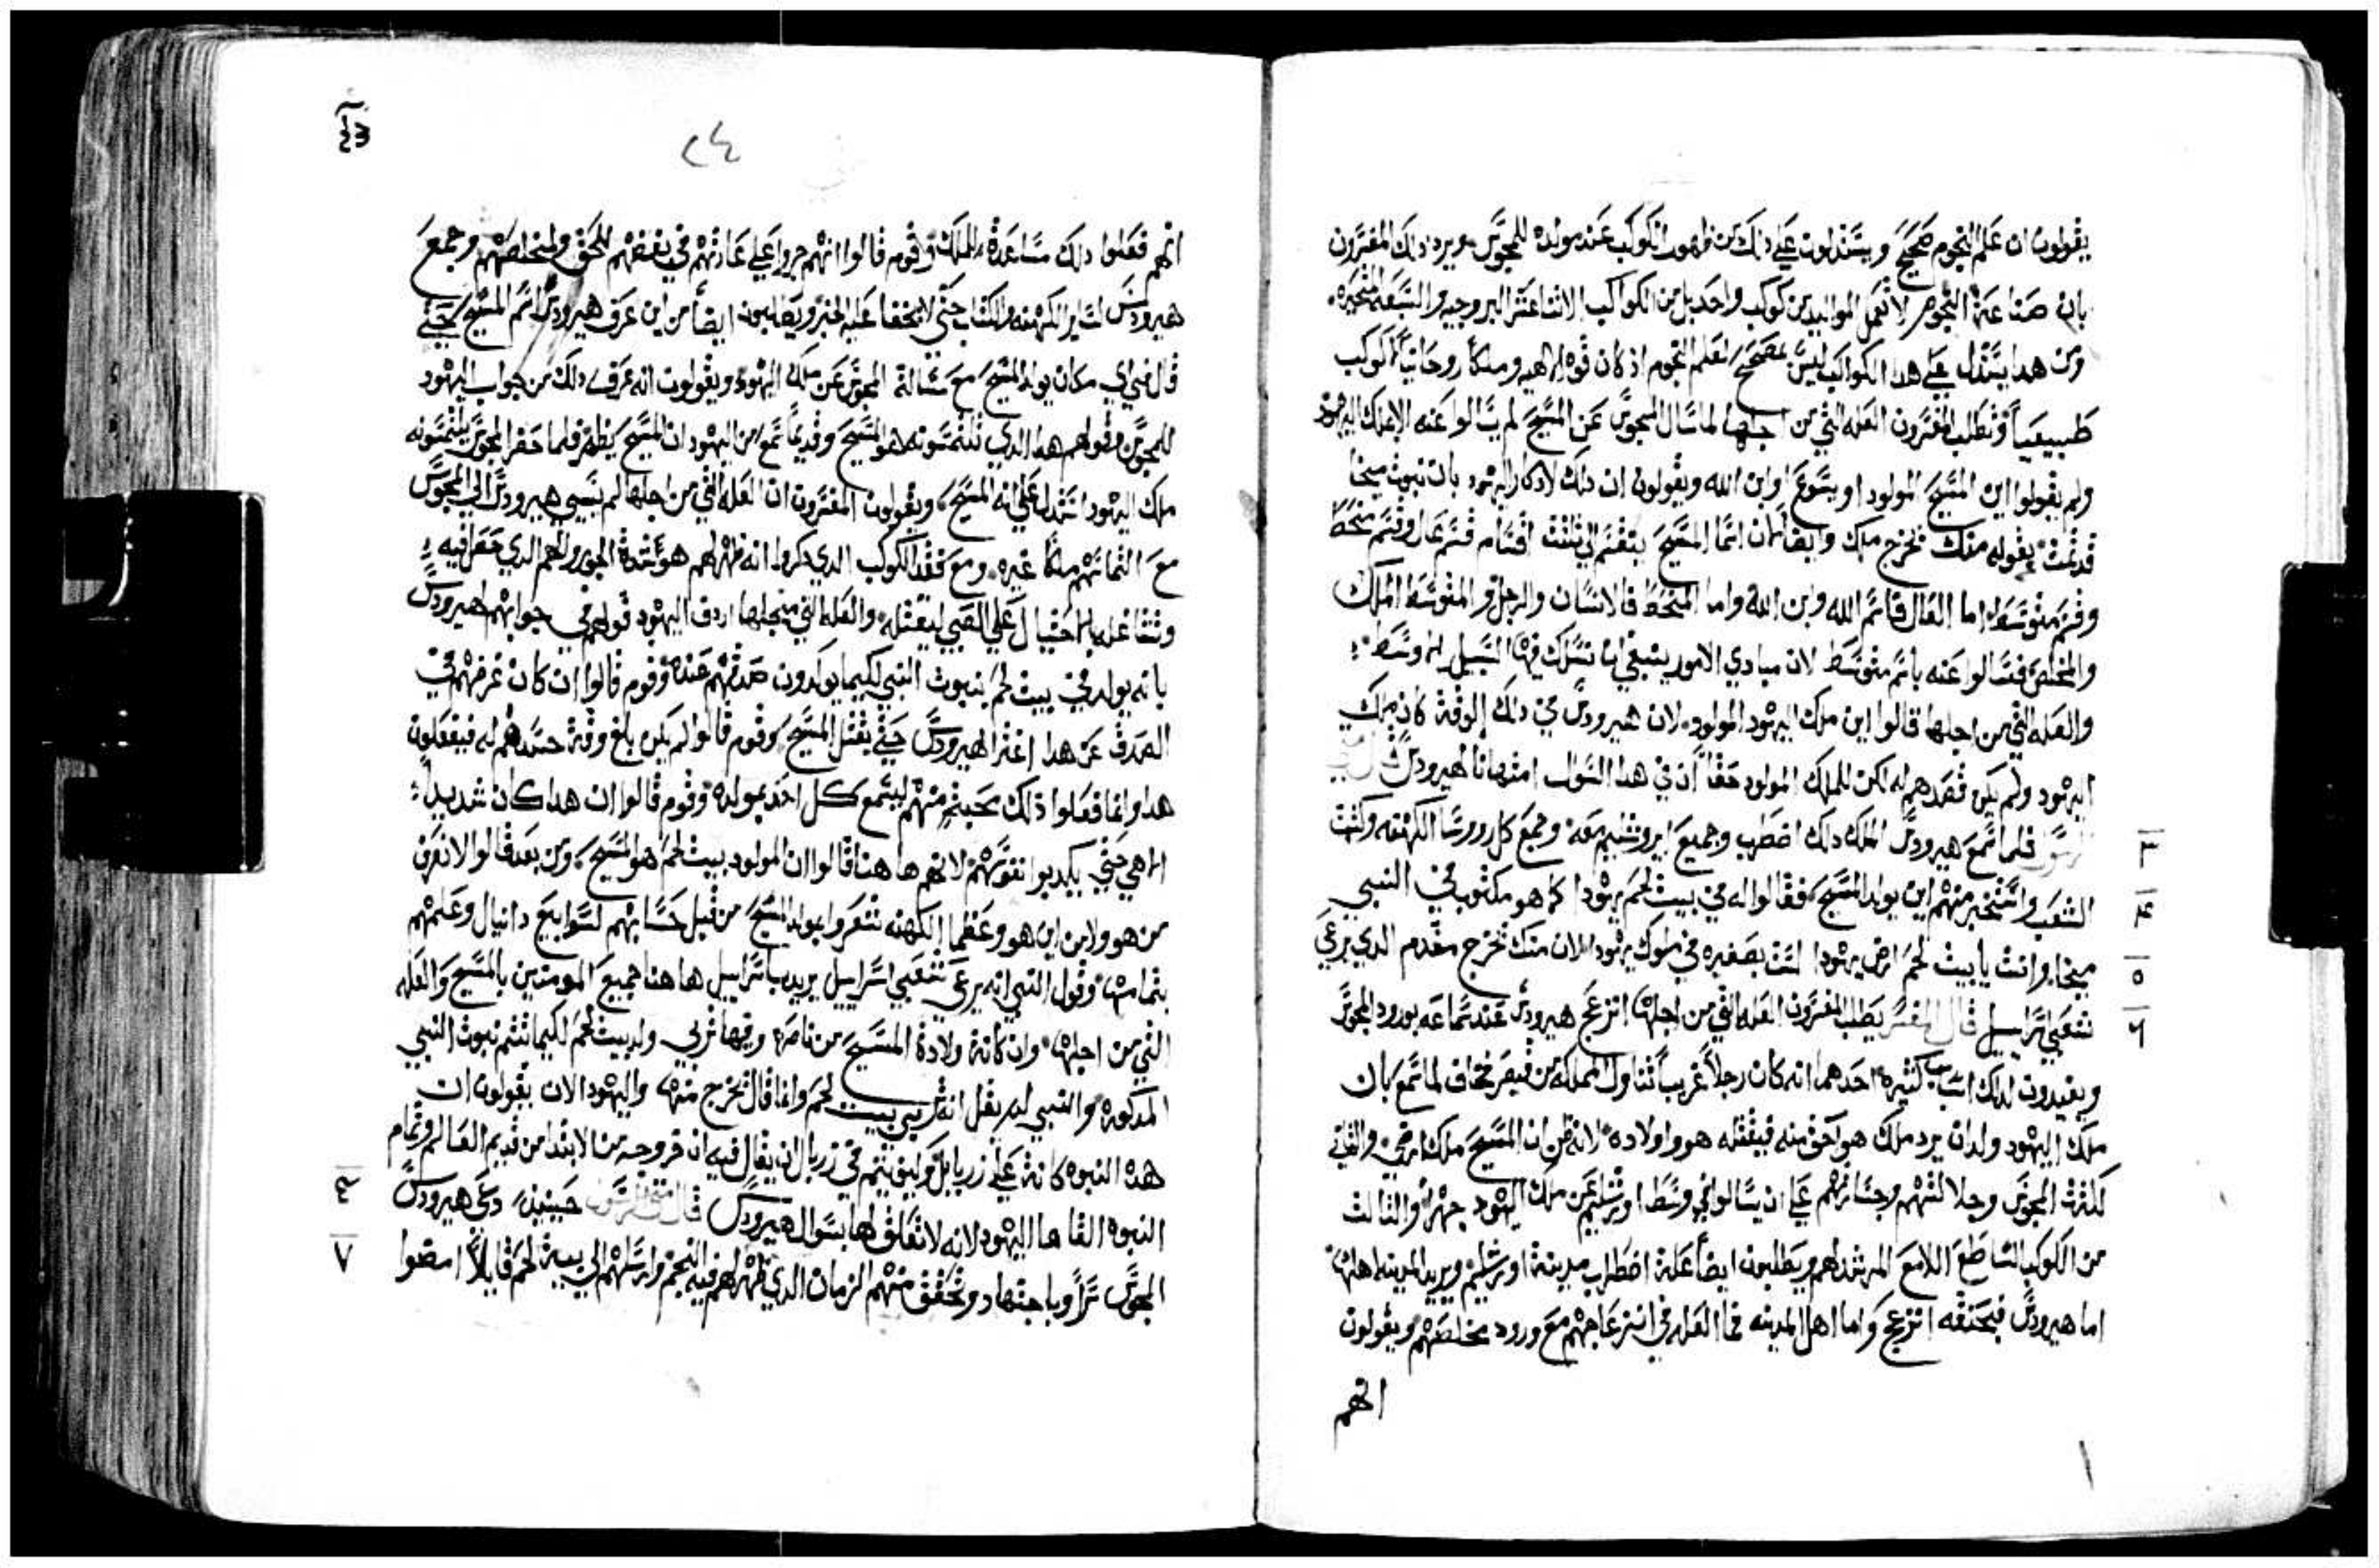 يقولون ان علم النجوم صحيح ويستدلون علي ذلك من ظهور الكوكب عند مولده للمجوس ويرد ذلك المفسرون
بان صناعة النجوم لا تعمل المواليد من كوكب واحد بل من الكواكب الاثناعشر البروجيه والسبعه المتحيره
ومن هدا يستدل علي هدا الكواكب ليس بمصحح لعلم النجوم اد كان قوه الاهيه وملكاً روحانياً لا كوكب
طبيعياً وتطلب المفسرون العله التي من اجلها لما سال المجوس عن المسيح لم يسالوا عنه الا ملك اليهود
ولم يقولوا اين المسيح المولود او يسوع او ابن الله ويقولون ان دلك لادكار اليهود بان نبوت ميخا
قد تمت بقوله منك يخرج ملك وايضاً فان اسما المسيح ينقسم الي تلتت اقسام قسم عال وقسم منحط
وقسم متوسط اما العال فاسم الله وابن الله واما المنحط فالانسان والرجل والمتوسط الملك
والمخلص فسالوا عنه باسم متوسط لان مبادي الامور ينبغي ان نسلك فيها السبيل الاوسط
والعله التي من اجلها قالوا اين ملك اليهود المولود لان هيرودس في دلك الوقت كان ملك
اليهود ولم يكن قصدهم له لكن للملك المولود حقاً ان في هدا السوال امتهانا لهيرودس قال متي
الرسول فلما سمع هيرودس الملك دلك اضطرب وجميع ايروشليم معه وجمع كل روسا الكهنه وكتبت
٣
الشعب واستخبر منهم اين يولد المسيح فقالوا له في بيت لحم يهودا كما هو مكتوب في النبي
٤
ميخا وانت يا بيت لحم ارض يهودا لست بصغيره في ملوك يهودا لان منك يخرج مقدم الدي يرعي
٥
شعبي اسراييل قال المفسر يطلب المفسرون العله التي من اجلها انزعج هيرودس عند سماعه بورود المجوس
٦
ويفيدون لدلك اسباب كثيره احدهما انه كان رجلاً غريباً تناول المملكه من قيصر فخاف لما سمع بان
ملك اليهود ولد ان يرد ملك هو احق منه فيقتله هو واولاده لانه ظن ان المسيح ملك ارضي والتاني
لكثرت المجوس وجلالتهم وجسارتهم علي ان يسالوا في وسط اورشليم عن ملك اليهود جهراً والثالث
من الكوكب الساطع اللامع المرشد لهم ويطلبون ايضاً علة اضطراب مدينة اورشليم ويريد المدينه اهلها
اما هيرودس فبحقه انزعج واما اهل المدينه فما العله في انزعاجهم مع ورود مخلصهم ويقولون
انهم
٢٤
انهم فعلوا دلك مساعدة للملك وقوم قالوا انهم جروا علي عادتهم في بغضهم للحق ولمخلصهم وجمع
هيرودس لساير الكهنه والكتاب حتي لا يخفا عليه الخبر ويطلبون ايضاً من اين عرف هيرودس اسم المسيح حتي
قال في اي مكان يولد المسيح مع مسالة المجوس عن ملك اليهود ويقولون انه عرف دلك من جواب اليهود
للمجوس وقولهم هدا الدي تلتمسونه هو المسيح وقديماً سمع من اليهود ان المسيح يظهر فلما حضر المجوس يلتمسونه
ملك اليهود استدل علي انه المسيح ويقولون المفسرون ان العله التي من اجلها لم يسي هيرودس الي المجوس
مع التماسهم ملكاً غيره ومع فقد الكوكب الدي دكروا انه ظهر لهم هو شدة الجور والهم الدي حصل فيه
وتشاغله بالاحتيال علي الصبي ليقتله والعله التي منجلها اردف اليهود قولهم في جوابهم لهيرودس
بانه يولد في بيت لحم بنبوت النبي لكيما يوكدون صدقهم عنده وقوم قالوا ان كان غرضهم في
الصدق عن هدا اغترا لهيرودس حتي يقتل المسيح وقوم قالوا لم يكن بلغ وقت حسدهم له فيفعلون
هدا وانما فعلوا ذلك محبة منهم ليسمع كل احد بمولده وقوم قالوا ان هدا كان تدبيراً
الاهي حتي يكدبوا نفوسهم لانهم هاهنا قالوا ان المولود ببيت لحم هو المسيح ومن بعد قالوا لا نعرف
من هو ولا من اين هو وعظما الكهنه شعروا بمولد المسيح من قبل حسابهم لسوابيع دانيال وعلمهم
بتمامها وقول النبي انه يرعي شعبي اسراييل يريد باسراييل هاهنا جميع المومنين بالمسيح والعله
التي من اجلها وان كانت ولادة المسيح من ناصره وفيها تربي ولد ببيت لحم لكيما تتم نبوت النبي
المدكوره والنبي لم يقل انه يربي ببيت لحم وانما قال يخرج منها واليهود الان يقولون ان
هده النبوه كانت علي زربابل وليق يتم في زربابل ان يقال فيه ان خروجه من الابتدا من قديم العالم وتمام
النبوه القاها اليهود لانه لا تعلق لها بسوال هيرودس قال متي الرسول حينيذ دعي هيرودس
٧
المجوس سراً وباجتهاد وتحقق منهم الزمان الدي ظهر لهم فيه النجم وارسلهم الي بيت لحم قايلاً امضوا